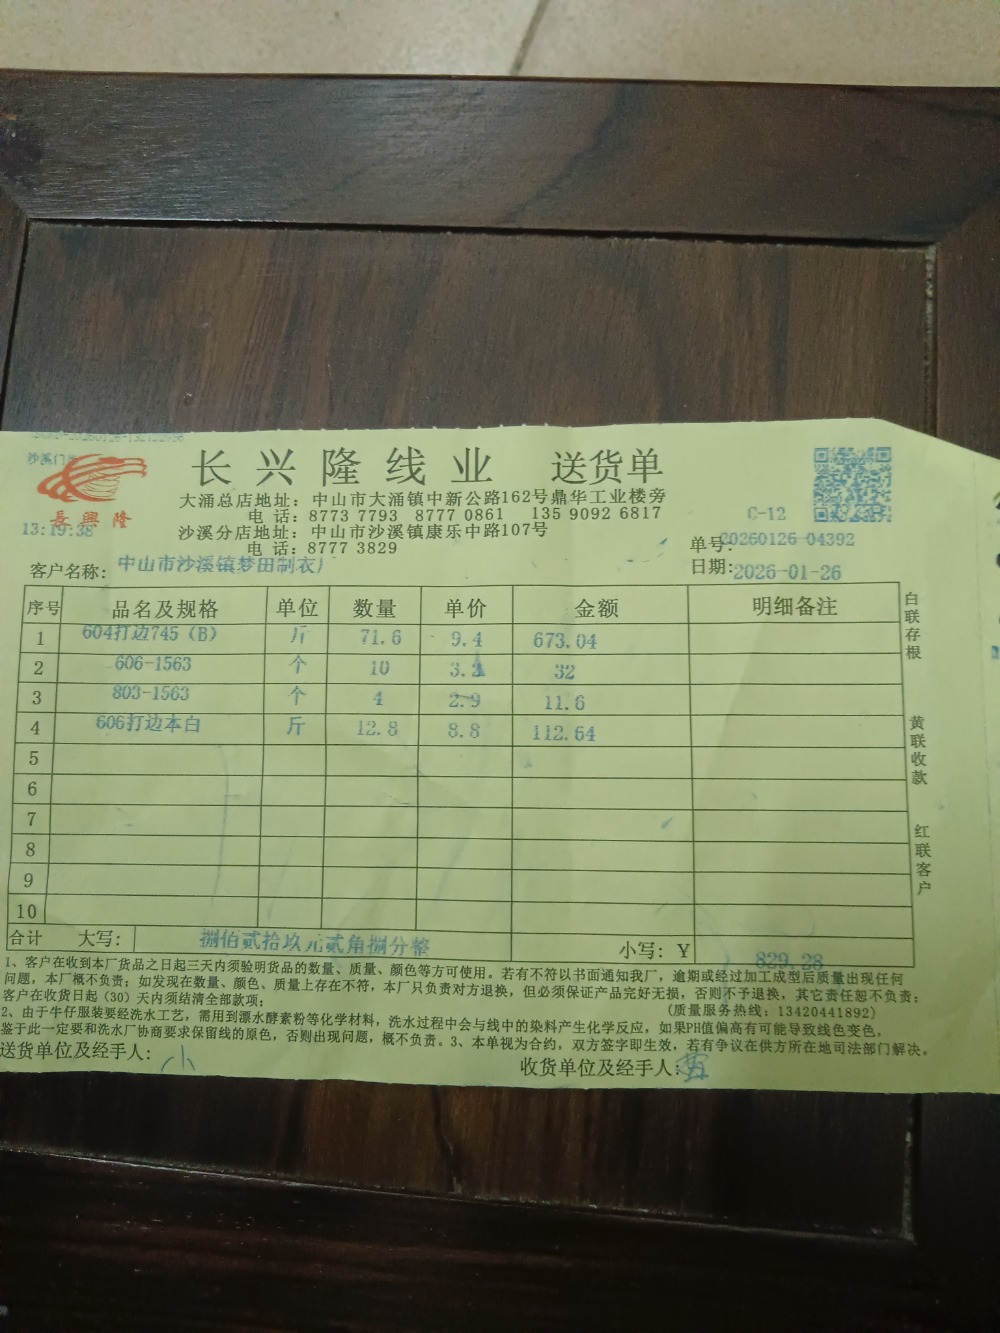 沙溪门
長興隆
13:19:38
长兴隆线业 送货单
大涌总店地址：中山市大涌镇中新公路162号鼎华工业楼旁
电 话：8773 7793 8777 0861 135 9092 6817
沙溪分店地址：中山市沙溪镇康乐中路107号
电 话：8777 3829
C-12
单号:20260126-04392
日期:2026-01-26
客户名称：中山市沙溪镇梦田制衣厂
序号 品名及规格 单位 数量 单价 金额 明细备注
1 604打边745（B） 斤 71.6 9.4 673.04
2 606-1563 个 10 3.2 32
3 803-1563 个 4 2.9 11.6
4 606打边本白 斤 12.8 8.8 112.64
5
6
7
8
9
10
合计 大写： 捌佰贰拾玖元贰角捌分整 小写：Y 829.28
白联存根
黄联收款
红联客户
1、客户在收到本厂货品之日起三天内须验明货品的数量、质量、颜色等方可使用。若有不符以书面通知我厂，逾期或经过加工成型后质量出现任何
问题，本厂概不负责；如发现在数量、颜色、质量上存在不符，本厂只负责对方退换，但必须保证产品完好无损，否则不予退换，其它责任恕不负责；
客户在收货日起（30）天内须结清全部款项；
(质量服务热线：13420441892)
2、由于牛仔服装要经洗水工艺，需用到漂水酵素粉等化学材料，洗水过程中会与线中的染料产生化学反应，如果PH值偏高有可能导致线色变色，
鉴于此一定要和洗水厂协商要求保留线的原色，否则出现问题，概不负责。3、本单视为合约，双方签字即生效，若有争议在供方所在地司法部门解决。
送货单位及经手人： 小
收货单位及经手人：